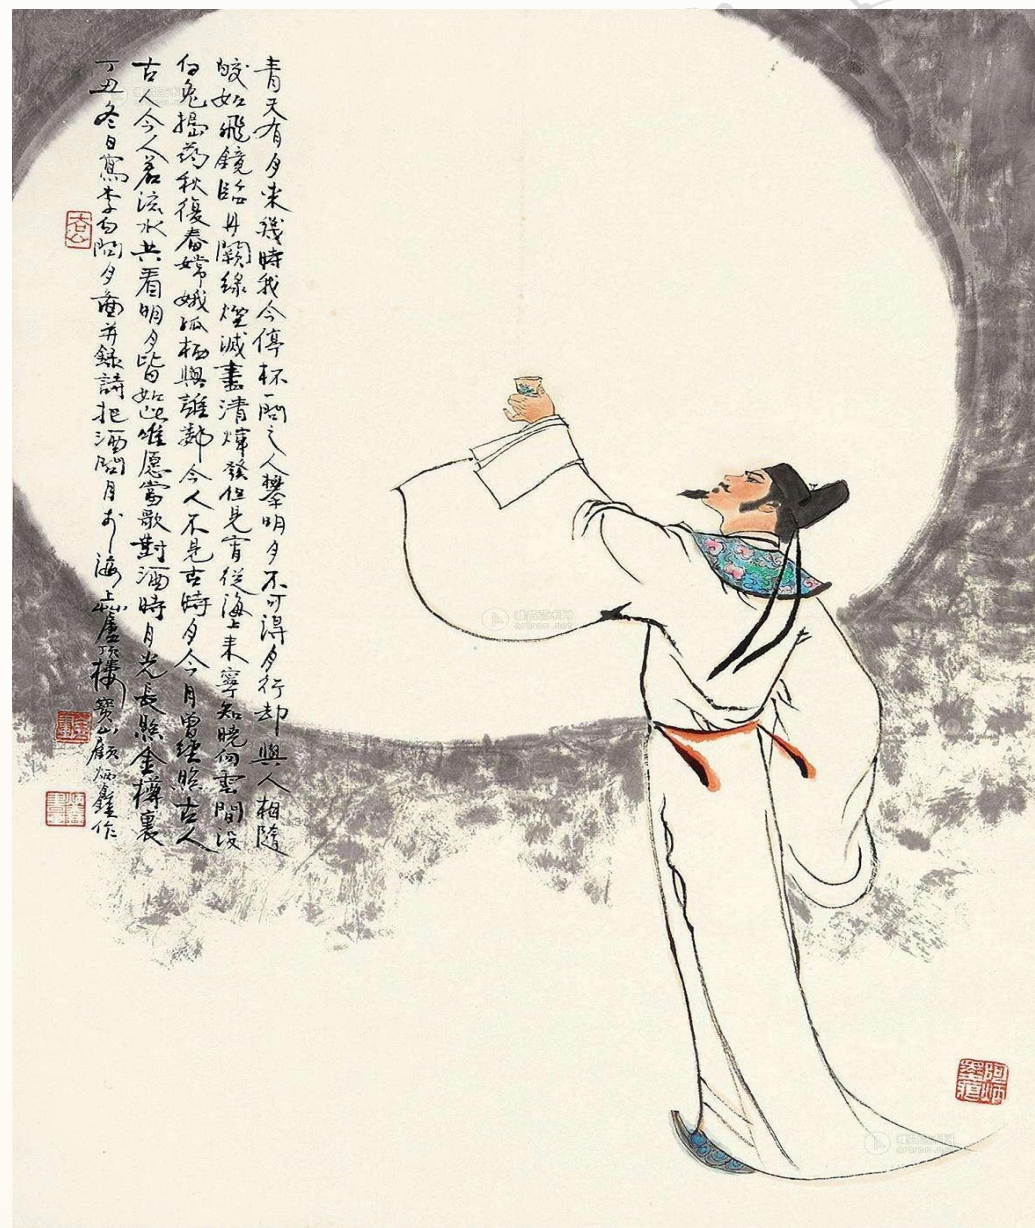 青天有月来幾時我今停杯一問之人攀明月不可得月行却與人相隨
皎如飛鏡臨丹闕綠煙滅盡清煇發但見宵從海上来寧知曉向雲間没
白兔搗藥秋復春嫦娥孤栖與誰鄰今人不見古時月今月曾經照古人
古人今人若流水共看明月皆如此唯愿當歌對酒時月光長照金樽裏
丁丑冬日寫李白問月啚并錄詩把酒問月於海上廬頂樓寶山顧炳鑫作
阿炳墨痕